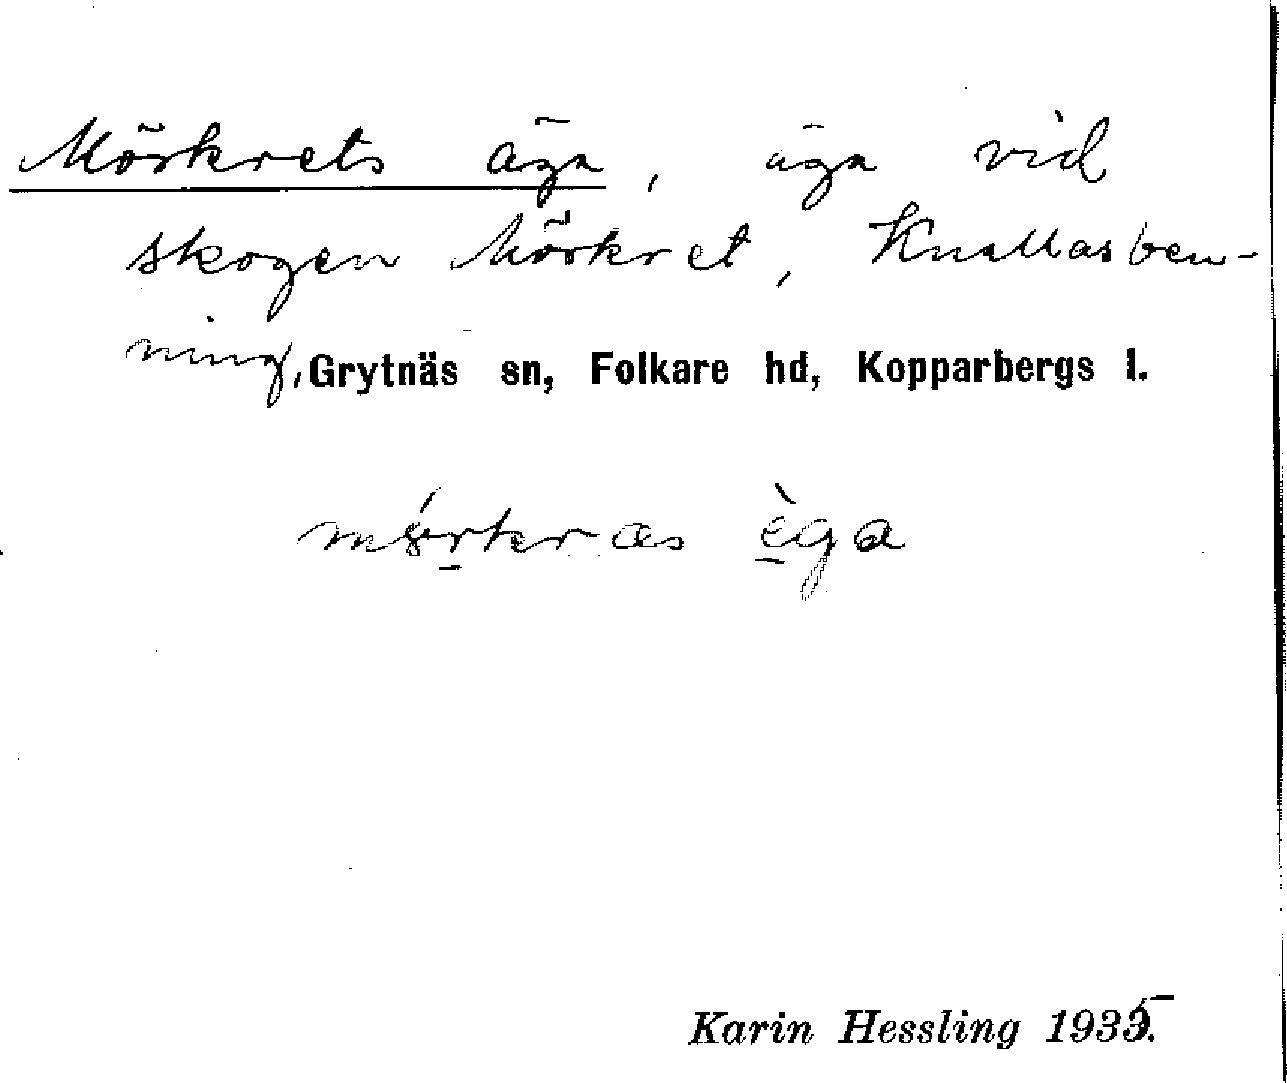 Mörkrets äga, äga vid
skogen Mörkret, Knallasben-
ning, Grytnäs sn, Folkare hd, Kopparbergs l.
mörkræs èga
Karin Hessling 1935.